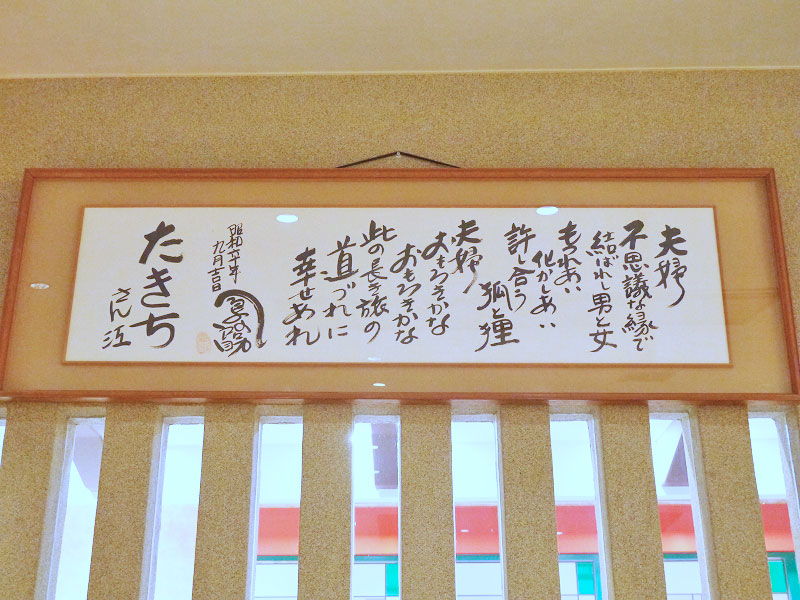 夫婦
不思議な縁で
結ばれし男と女
もつれあい
化かしあい
許し合う
狐と狸
夫婦
おもろきかな
おもろきかな
此の長き旅の
道づれに
幸せあれ
昭和六十年
九月吉日
たきち
さん江